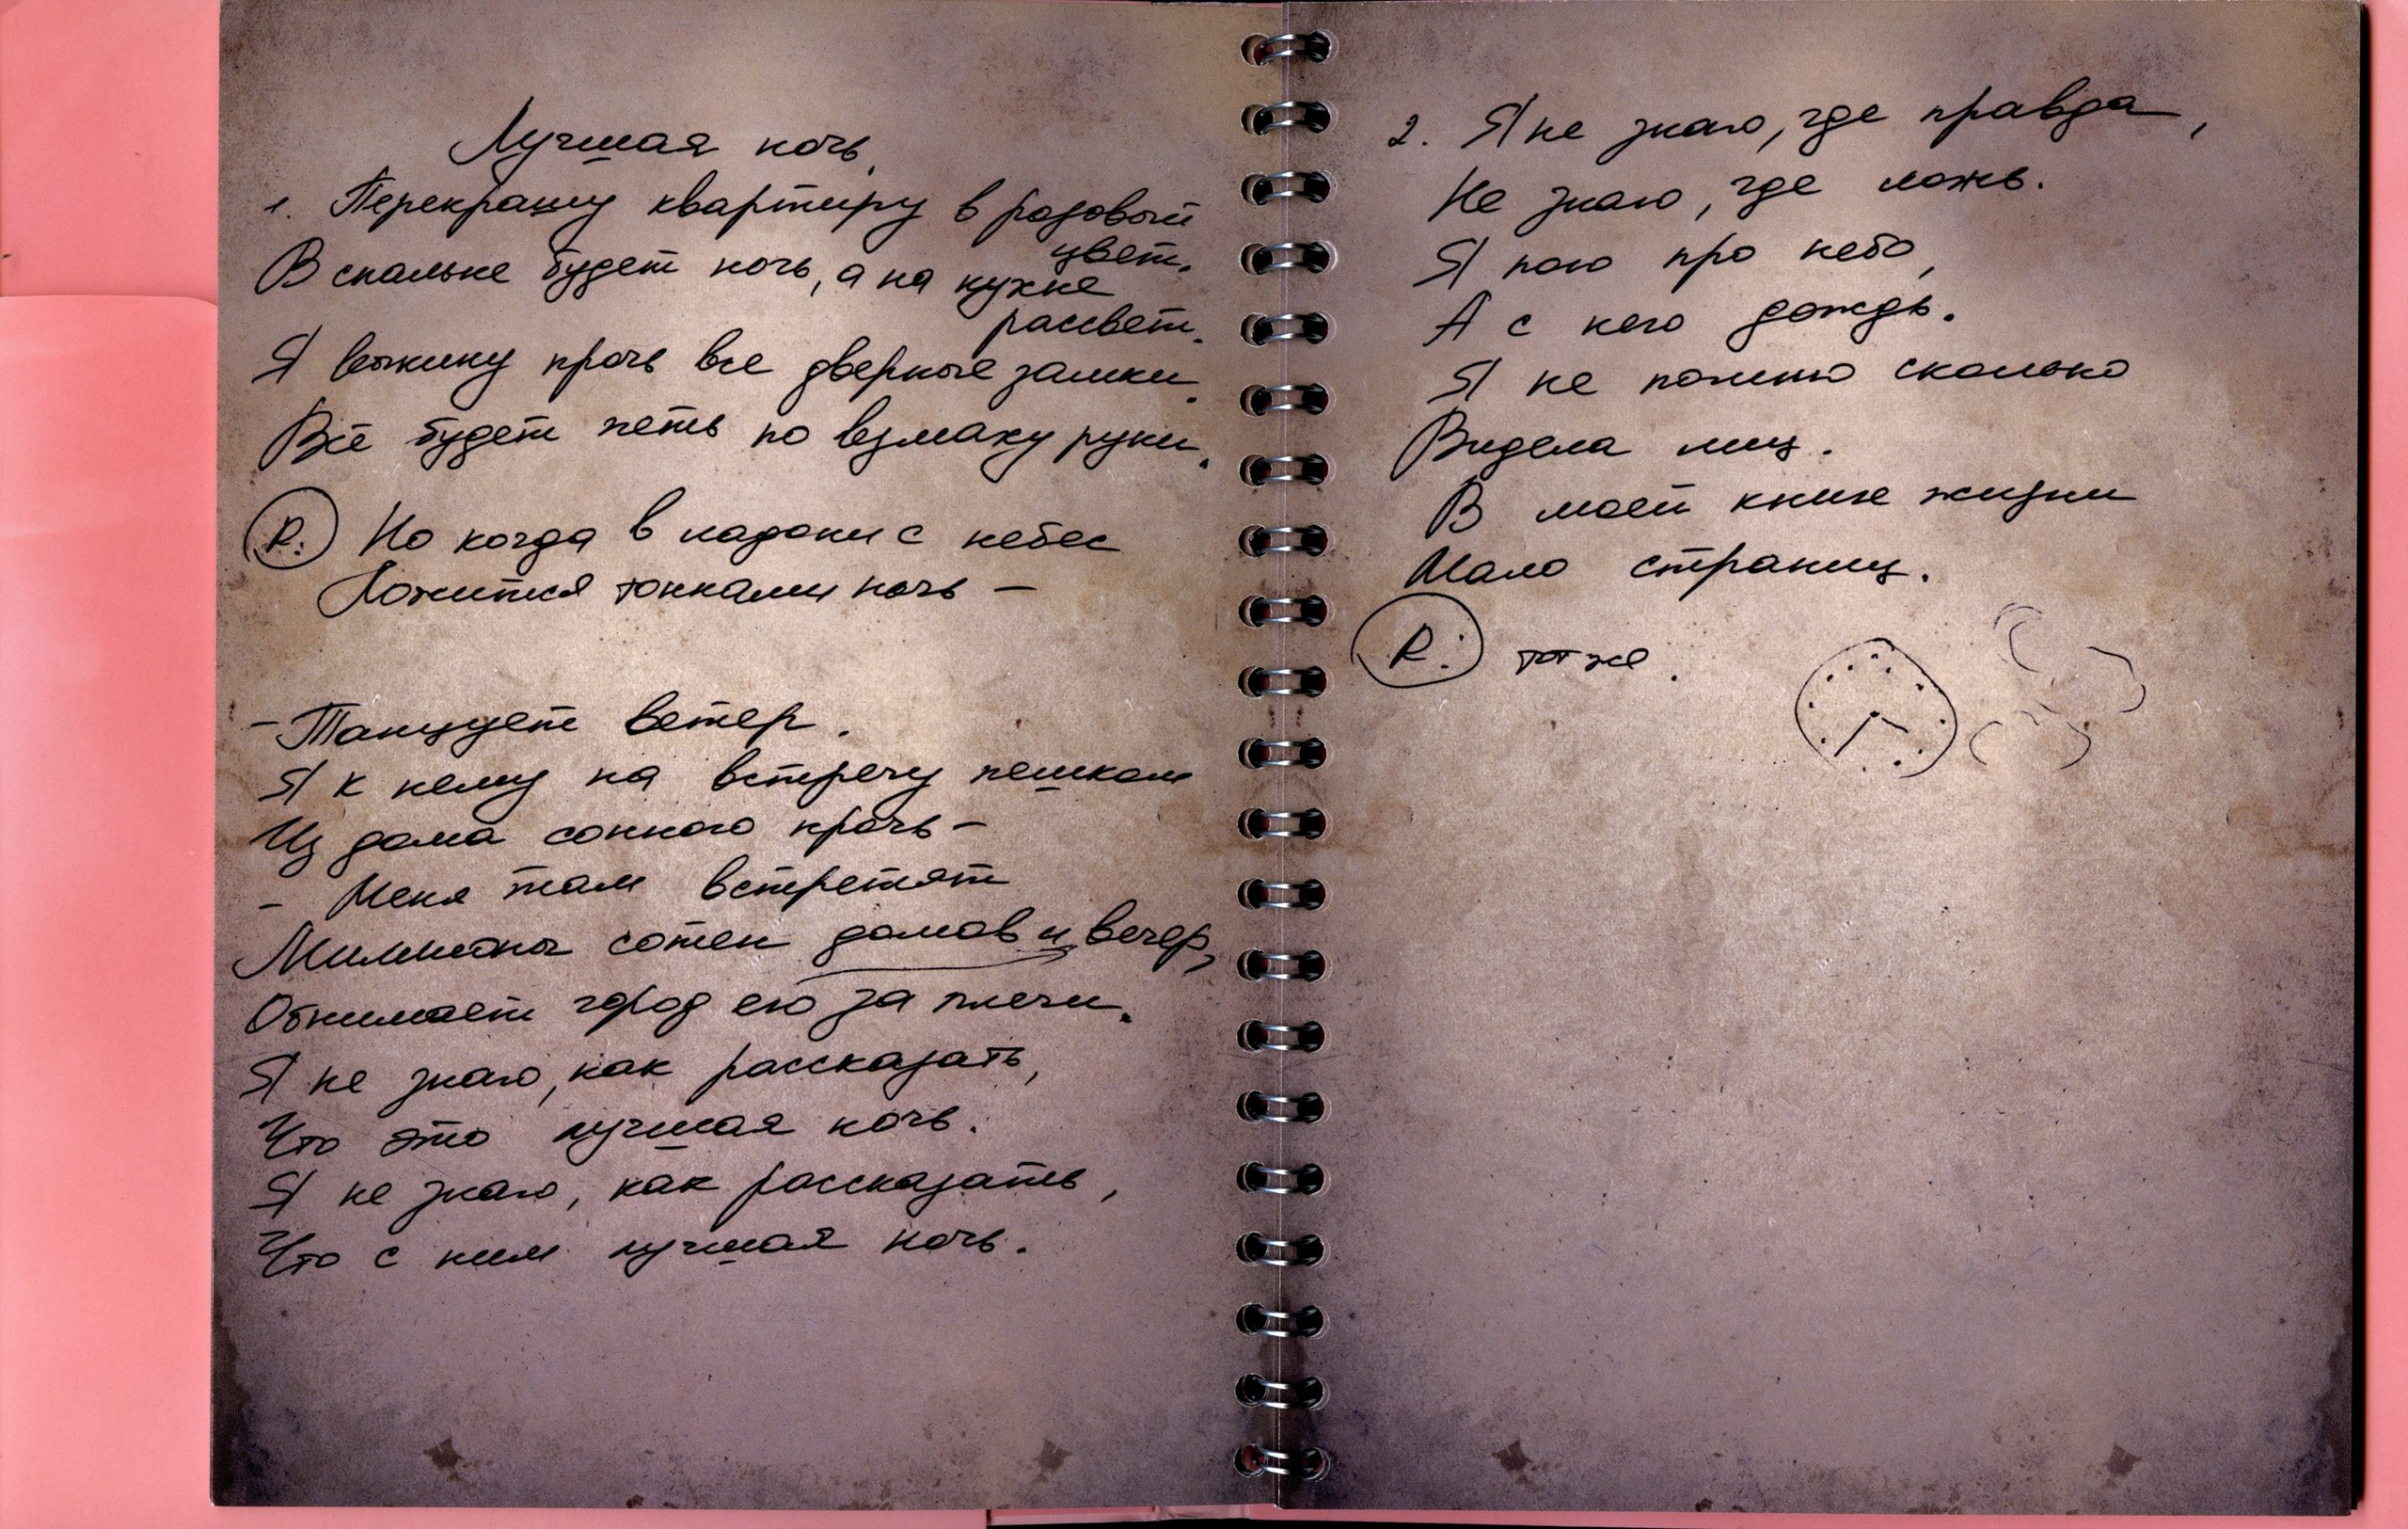 Лучшая ночь.
1. Перекрашу квартиру в розовый
цвет.
В спальне будет ночь, а на кухне
рассвет.
Я выкину прочь все дверные замки.
Всё будет петь по взмаху руки.
R: Но когда в ладони с небес
Ложится тоннами ночь –
– Танцует ветер.
Я к нему на встречу пешком
Из дома сонного прочь –
– Меня там встретят
Миллионы сотен домов и вечер,
Обнимает город его за плечи.
Я не знаю, как рассказать,
Что это лучшая ночь.
Я не знаю, как рассказать,
Что с ним лучшая ночь.
2. Я не знаю, где правда,
Не знаю, где ложь.
Я пою про небо,
А с него дождь.
Я не помню сколько
Видела лиц.
В моей книге жизни
Мало страниц.
R: тот же.